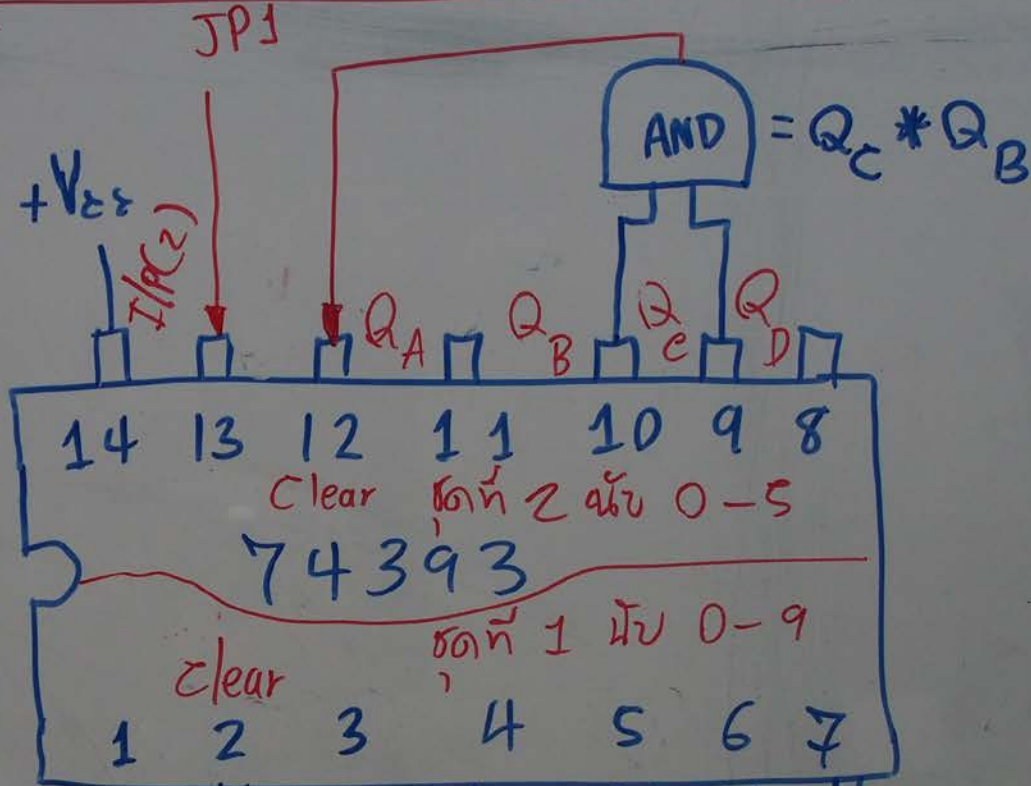 JP1
AND = QC * QB
+Vcc
I/P(2)
QA QB QC QD
14 13 12 11 10 9 8
Clear ชุดที่ 2 นับ 0-5
74393
ชุดที่ 1 นับ 0-9
Clear
1 2 3 4 5 6 7